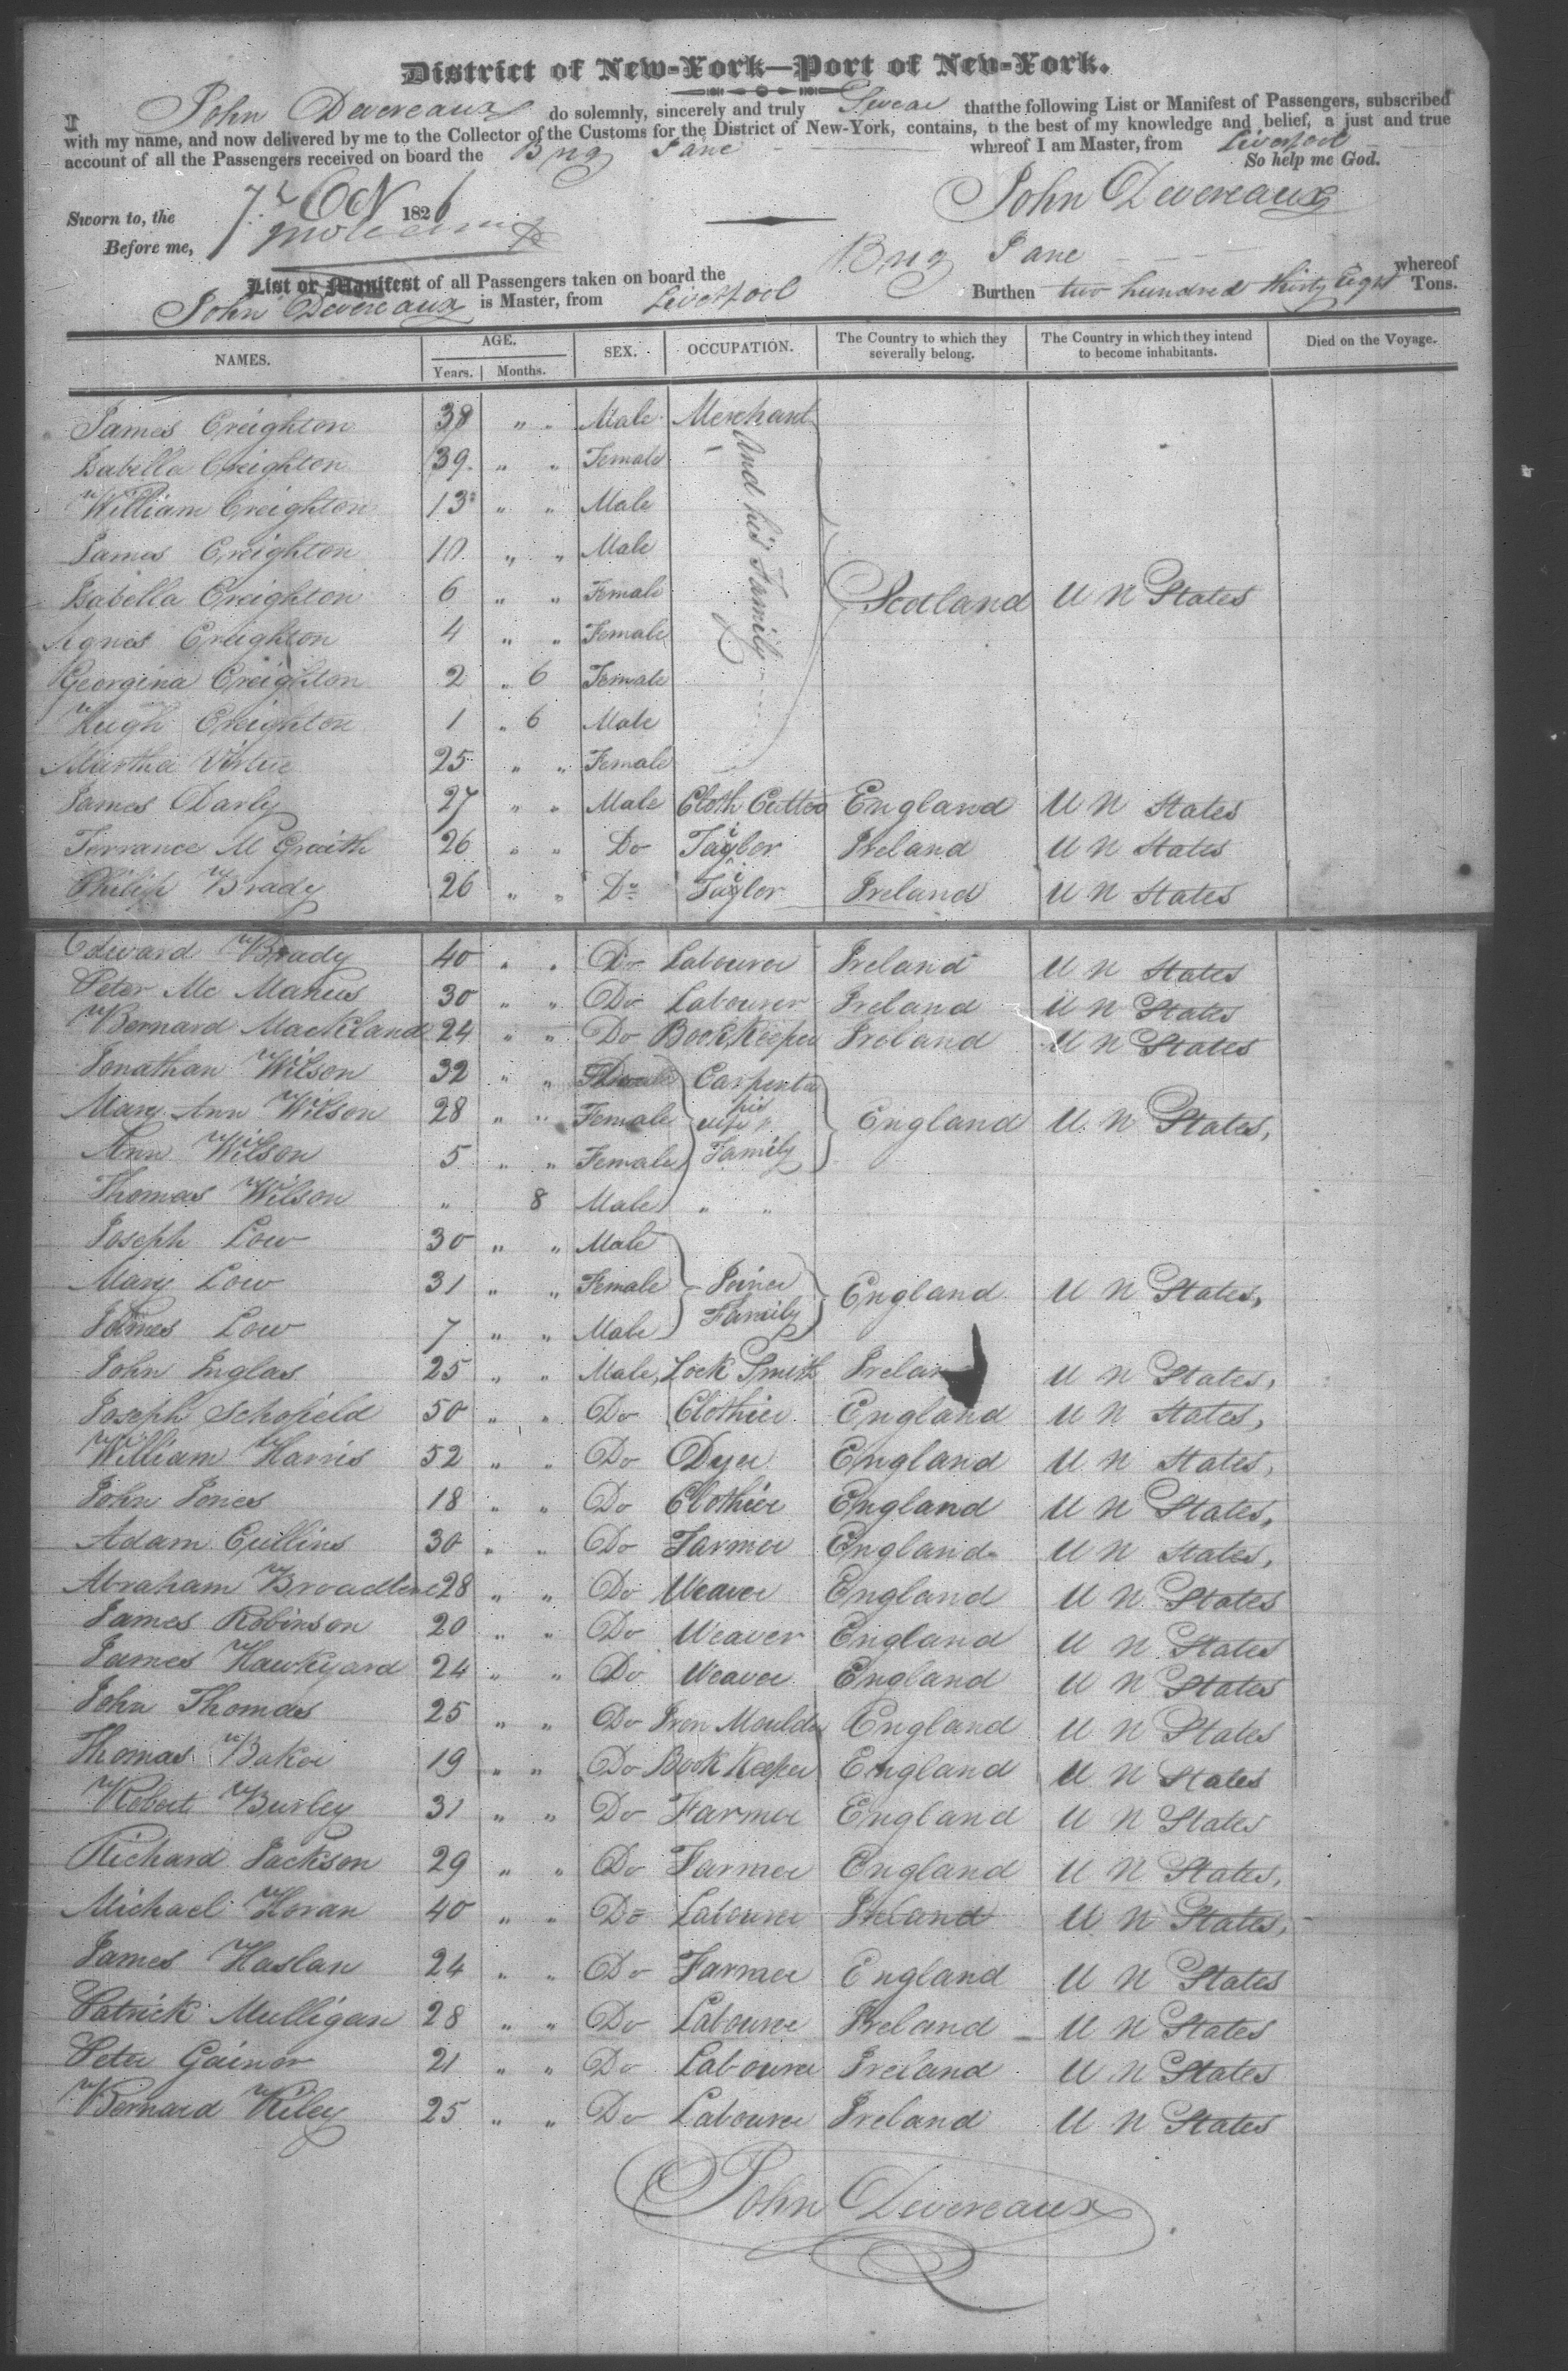 District of New-York—Port of New-York.
I John Devereaux do solemnly, sincerely and truly Swear that the following List or Manifest of Passengers, subscribed
with my name, and now delivered by me to the Collector of the Customs for the District of New-York, contains, to the best of my knowledge and belief, a just and true
account of all the Passengers received on board the Brig Jane whereof I am Master, from Liverpool
So help me God.
Sworn to, the 7th Oct 1826 John Devereaux
Before me,
List or Manifest of all Passengers taken on board the Brig Jane whereof
John Devereaux is Master, from Liverpool Burthen two hundred thirty Eight Tons.
NAMES. AGE. SEX. OCCUPATION. The Country to which they severally belong. The Country in which they intend to become inhabitants. Died on the Voyage.
Years. Months.
James Creighton 38 " " Male Merchant
Isabella Creighton 39 " " Female And his Family
William Creighton 13 " " Male
James Creighton 10 " " Male
Isabella Creighton 6 " " Female Scotland U N States
Agnes Creighton 4 " " Female
Georgina Creighton 2 " 6 Female
Hugh Creighton 1 " 6 Male
Martha Virtue 25 " " Female
James Darly 27 " " Male Cloth Cutter England U N States
Terrance Mc Graith 26 " " Do Taylor Ireland U N States
Philip Brady 26 " " Do Taylor Ireland U N States
Edward Brady 40 " " Do Labourer Ireland U N States
Peter Mc Manus 30 " " Do Labourer Ireland U N States
Bernard Mackland 24 " " Do Book Keeper Ireland U N States
Jonathan Wilson 32 " " Carpenter
Mary Ann Wilson 28 " " Female his wife " England U N States,
Ann Wilson 5 " " Female Family
Thomas Wilson " 8 Male " "
Joseph Low 30 " " Male
Mary Low 31 " " Female Joiner England U N States,
James Low 7 " " Male Family
John Inglas 25 " " Male, Lock Smith Ireland U N States,
Joseph Schofield 50 " " Do Clothier England U N States,
William Harris 52 " " Do Dyer England U N States,
John Jones 18 " " Do Clothier England U N States,
Adam Cullins 30 " " Do Farmer England U N States,
Abraham Broadbent 28 " " Do Weaver England U N States
James Robinson 20 " " Do Weaver England U N States
James Hawkyard 24 " " Do Weaver England U N States
John Thomas 25 " " Do Iron Moulder England U N States
Thomas Baker 19 " " Do Book Keeper England U N States
Robert Burley 31 " " Do Farmer England U N States
Richard Jackson 29 " " Do Farmer England U N States,
Michael Horan 40 " " Do Labourer Ireland U N States,
James Haslan 24 " " Do Farmer England U N States
Patrick Mulligan 28 " " Do Labourer Ireland U N States
Peter Gainor 21 " " Do Labourer Ireland U N States
Bernard Riley 25 " " Do Labourer Ireland U N States
John Devereaux